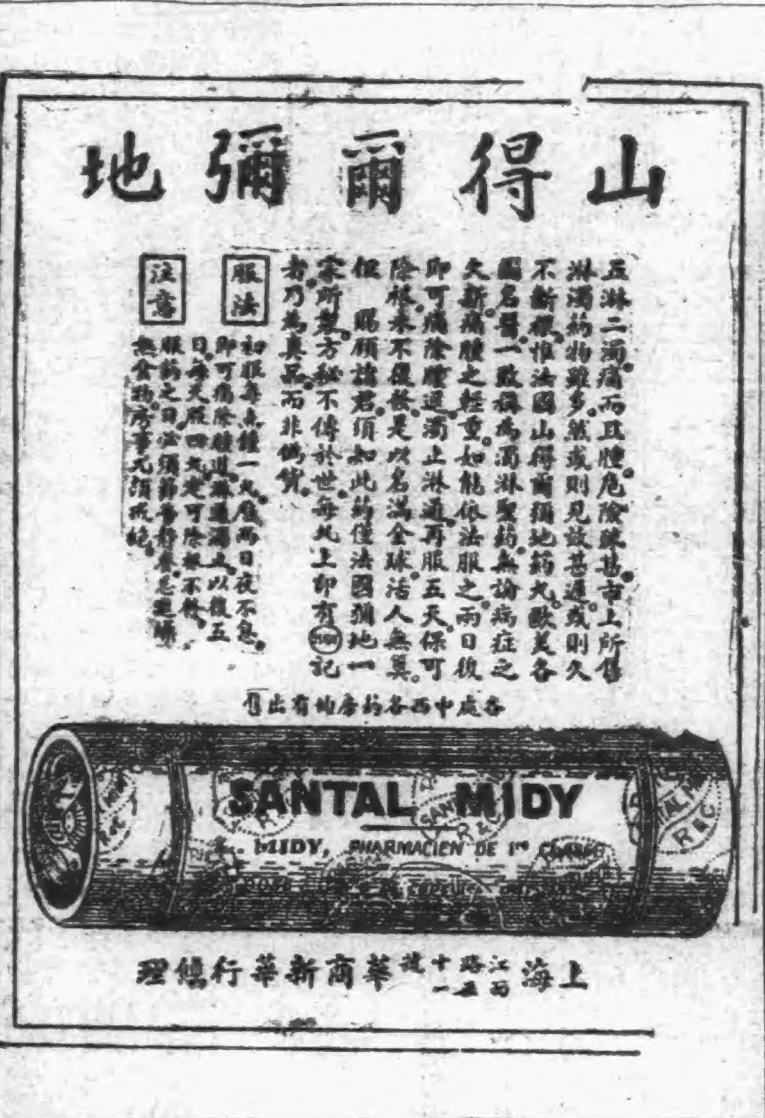 山得爾彌地
五淋二濁。痛而且腫。危險殊甚。市上所售
淋濁葯物雖多。然或則見效甚遲。或則久
不斷根。惟法國山得爾彌地葯丸。歐美各
國名醫。一致稱為濁淋聖葯。無論病症之
久新。痛腫之輕重。如能依法服之。兩日後
即可痛除腫退。濁止淋通。再服五天。保可
除根。永不復發。是以名滿全球。活人無算。
但 賜顧諸君。須知此葯僅法國彌地一
家所製。方秘不傳於世。每丸上印有 MIDY 記
者。乃為真品。而非偽貨。
服法
初服每點鐘一丸。歷兩日夜不息。
即可痛除腫退。淋通濁止。以後五
日。每天服四次。定可除根不發。
注意
服葯之日。必須節勞靜養。忌
無食物。房事尤須戒絕。
各處中西各葯房均有出售
SANTAL MIDY
MIDY, PHARMACIEN DE 1re CLASSE
上海江西路五十一號華商新華行總理